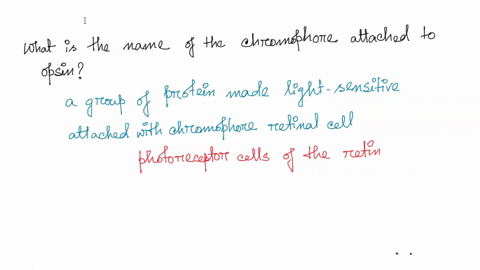 What is the name of the chromophore attached to
opsin?
a group of protein made light-sensitive
attached with chromophore retinal cell
photoreceptor cells of the retin